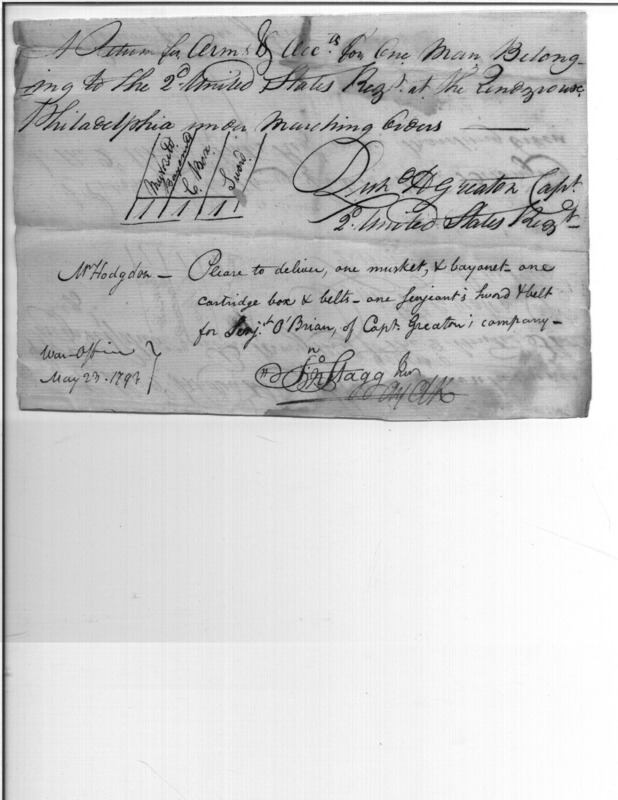 A Return for Arms & Acc.ts for One Man Belong-
ing to the 2d. United States Regt. at the Rendzvouse
Philadelphia under Marching Orders
Muskets
Bayonets
C. Box.
Sword
1 1 1 1
Rich H Greaton Capt.
2d. United States Regt.
Mr Hodgdon — Please to deliver, one musket, & bayonet - one
cartridge box & belts - one Serjeant's sword & belt
for Serjt. O'Brian, of Capt. Greaton's company -
War-Office
May 23. 1793
Jno Stagg Junr